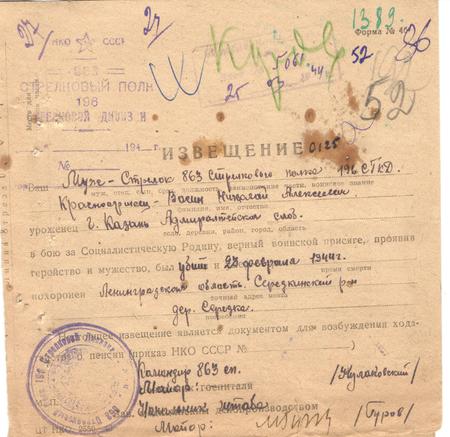 27/ НКО СССР 27 1389.
Форма № 4
863
СТРЕЛКОВЫЙ ПОЛК
196
52 86
25 44
52
194 г.
ИЗВЕЩЕНИЕ 0125
№
Ваш Муж - Стрелок 863 Стрелкового полка 196 СТКД.
муж, сын, брат, должность, наименование части, воинское звание
Красноармеец - Восин Николай Алексеевич
фамилия, имя, отчество
уроженец г. Казань Адмиралтейская слоб.
село, деревня, район, город, область
в бою за Социалистическую Родину, верный воинской присяге, проявив
геройство и мужество, был убит 23 февраля 1944г.
время смерти
похоронен Ленинградская область. Середкинский р-н
точный адрес места
дер. Середка.
извещение является документом для возбуждения хода-
пенсии (приказ НКО СССР № )
Командир 863 сп.
Майор: госпиталя /Кулаковский/
М.П.
Начальник штаба
делопроизводством
Майор: /Гуров/